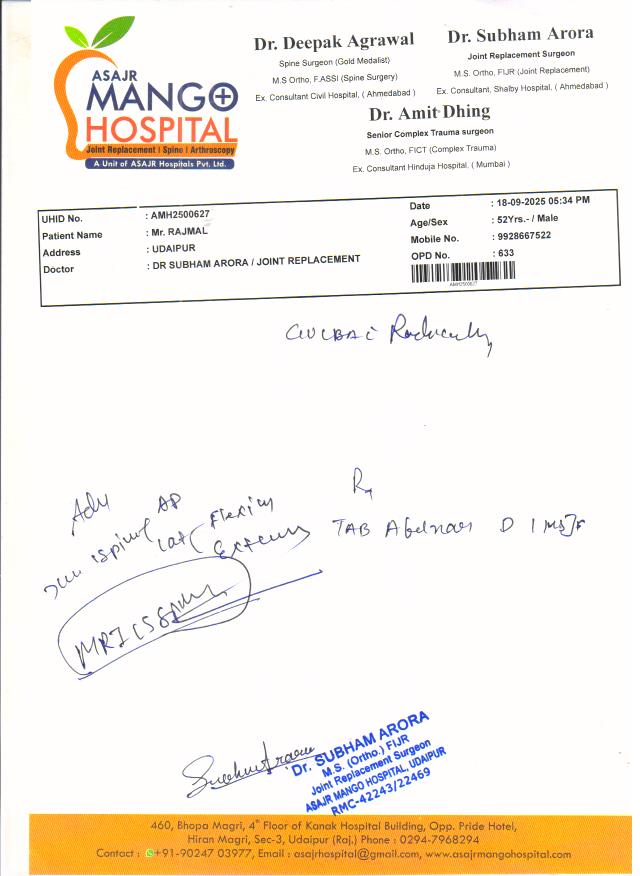 ASAJR
MANGO
HOSPITAL
Joint Replacement | Spine | Arthroscopy
A Unit of ASAJR Hospitals Pvt. Ltd.
Dr. Deepak Agrawal
Spine Surgeon (Gold Medalist)
M.S Ortho, F.ASSI (Spine Surgery)
Ex. Consultant Civil Hospital, ( Ahmedabad )
Dr. Subham Arora
Joint Replacement Surgeon
M.S. Ortho, FIJR (Joint Replacement)
Ex. Consultant, Shalby Hospital, ( Ahmedabad )
Dr. Amit Dhing
Senior Complex Trauma surgeon
M.S. Ortho, FICT (Complex Trauma)
Ex. Consultant Hinduja Hospital, ( Mumbai )
UHID No. : AMH2500627
Patient Name : Mr. RAJMAL
Address : UDAIPUR
Doctor : DR SUBHAM ARORA / JOINT REPLACEMENT
Date : 18-09-2025 05:34 PM
Age/Sex : 52Yrs.- / Male
Mobile No. : 9928667522
OPD No. : 633
AMH2500627
Adv
AP
Lat
Flexion
Rx
TAB
MRI
Dr. SUBHAM ARORA
M.S. (Ortho.) FIJR
Joint Replacement Surgeon
ASAJR MANGO HOSPITAL, UDAIPUR
RMC-42243/22469
460, Bhopa Magri, 4th Floor of Kanak Hospital Building, Opp. Pride Hotel,
Hiran Magri, Sec-3, Udaipur (Raj.) Phone : 0294-7968294
Contact : +91-90247 03977, Email : asajrhospital@gmail.com, www.asajrmangohospital.com